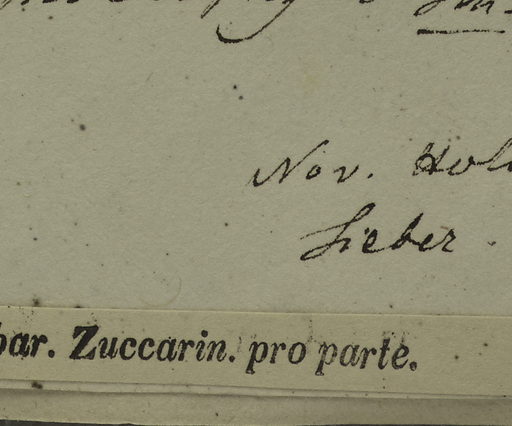 Nov. Holl
Sieber.
bar. Zuccarin. pro parte.